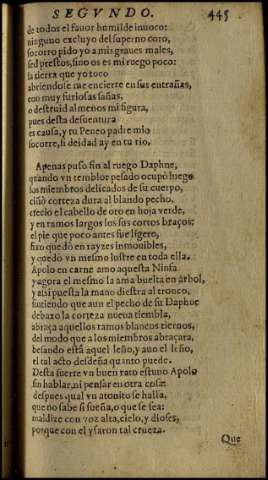 SEGVNDO. 445
de todos el fauor humilde inuoco:
ninguno excluyo del superno coro,
socorro pido yo a mis graues males,
sed prestos, sino os es mi ruego poco:
la tierra que yo toco
abriendose me encierre en sus entrañas,
con muy furiosas sañas,
o destruid al menos mi figura,
pues desta desuentura
es causa, y tu Peneo padre mio
socorre, si deidad ay en tu rio.
Apenas puso fin al ruego Daphne,
quando vn temblor pesado ocupò luego
los miembros delicados de su cuerpo,
ciñò corteza dura al blando pecho,
crecio el cabello de oro en hoja verde,
y en ramos largos los sus cortos braços;
el pie que poco antes fue ligero,
firo quedò en rayzes inmouibles,
y quedò vn mesmo lustre en toda ella.
Apolo en carne amo aquesta Ninfa
y agora el mesmo la ama buelta en àrbol,
y assi puesta la mano diestra al tronco,
sintiendo que aun el pecho de su Daphne
debaxo la corteza nueua tiembla,
abraça aquellos ramos blancos tiernos,
del modo que a los miembros abraçara,
besando està aquel leño, y aun el leño,
el tal acto desdeña quanto puede.
Desta suerte vn buen rato estuuo Apolo
sin hablar, ni pensar en otra cosa:
despues qual vn atonito se halla,
que no sabe si sueña, o que se sea:
maldize con voz alta, cielo, y dioses,
porque con el vsaron tal crueza.
Que